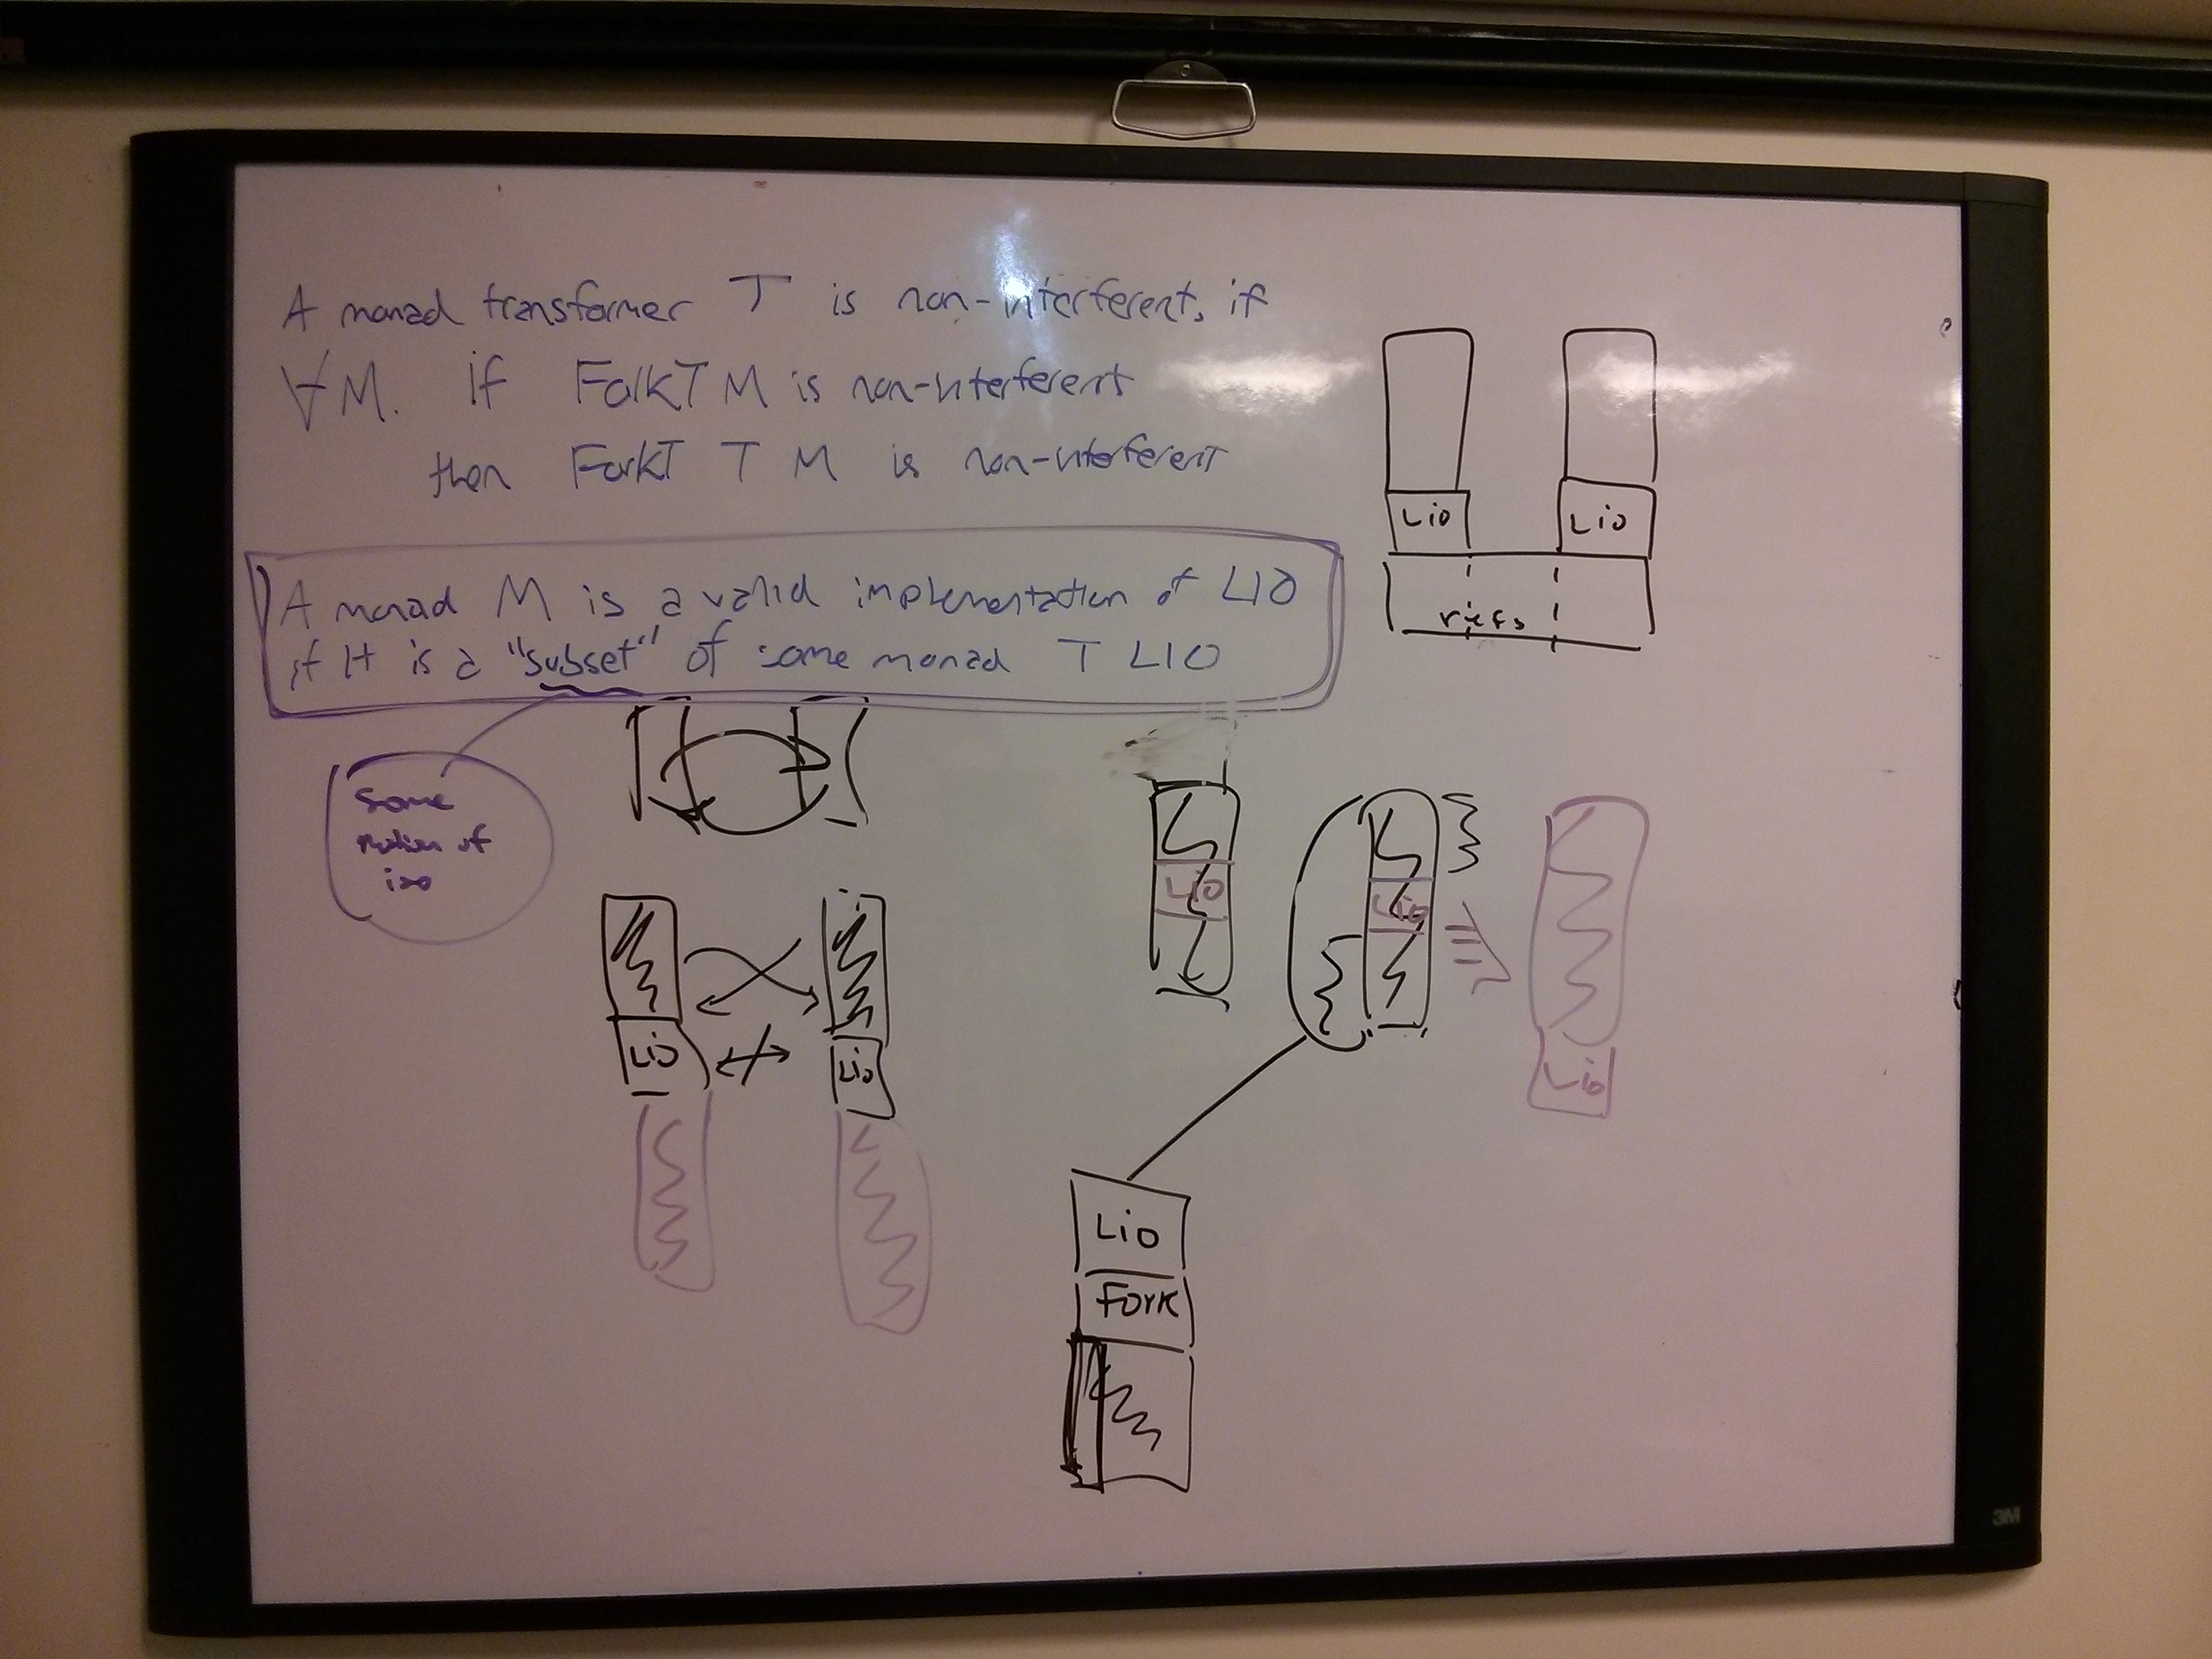 A monad transformer T is non-interferent, if
∀M. if ForkT M is non-interferent
then ForkT T M is non-interferent
A monad M is a valid implementation of LIO
if it is a "subset" of some monad T LIO
Some
notion of
iso
Lio
Lio
refs
Lio
Lio
Lio
Lio
Lio
Lio
Fork
3M